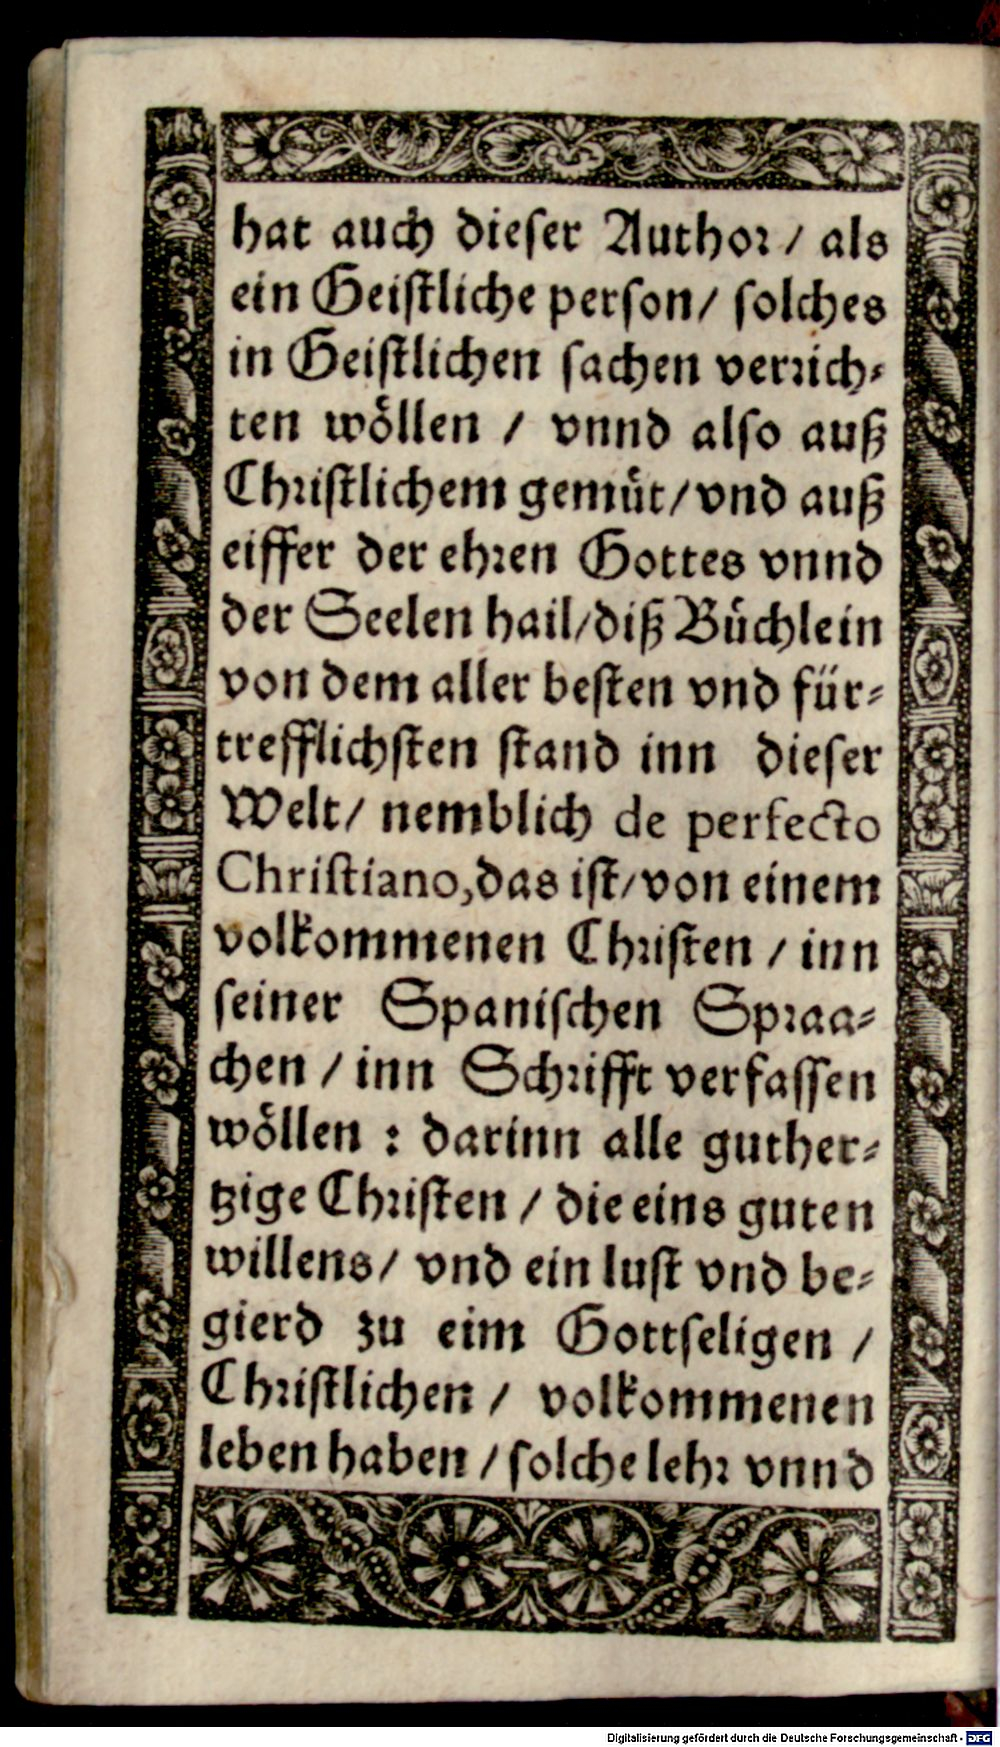 hat auch dieser Author / als
ein Geistliche person / solches
in Geistlichen sachen verrich⸗
ten wöllen / vnnd also auß
Christlichem gemüt / vnd auß
eiffer der ehren Gottes vnnd
der Seelen hail / diß Büchlein
von dem aller besten vnd für⸗
trefflichsten stand inn dieser
Welt / nemblich de perfecto
Christiano, das ist / von einem
volkommenen Christen / inn
seiner Spanischen Spraa⸗
chen / inn Schrifft verfassen
wöllen : darinn alle guther⸗
tzige Christen / die eins guten
willens / vnd ein lust vnd be⸗
gierd zu eim Gottseligen /
Christlichen / volkommenen
leben haben / solche lehr vnnd
Digitalisierung gefördert durch die Deutsche Forschungsgemeinschaft - DFG